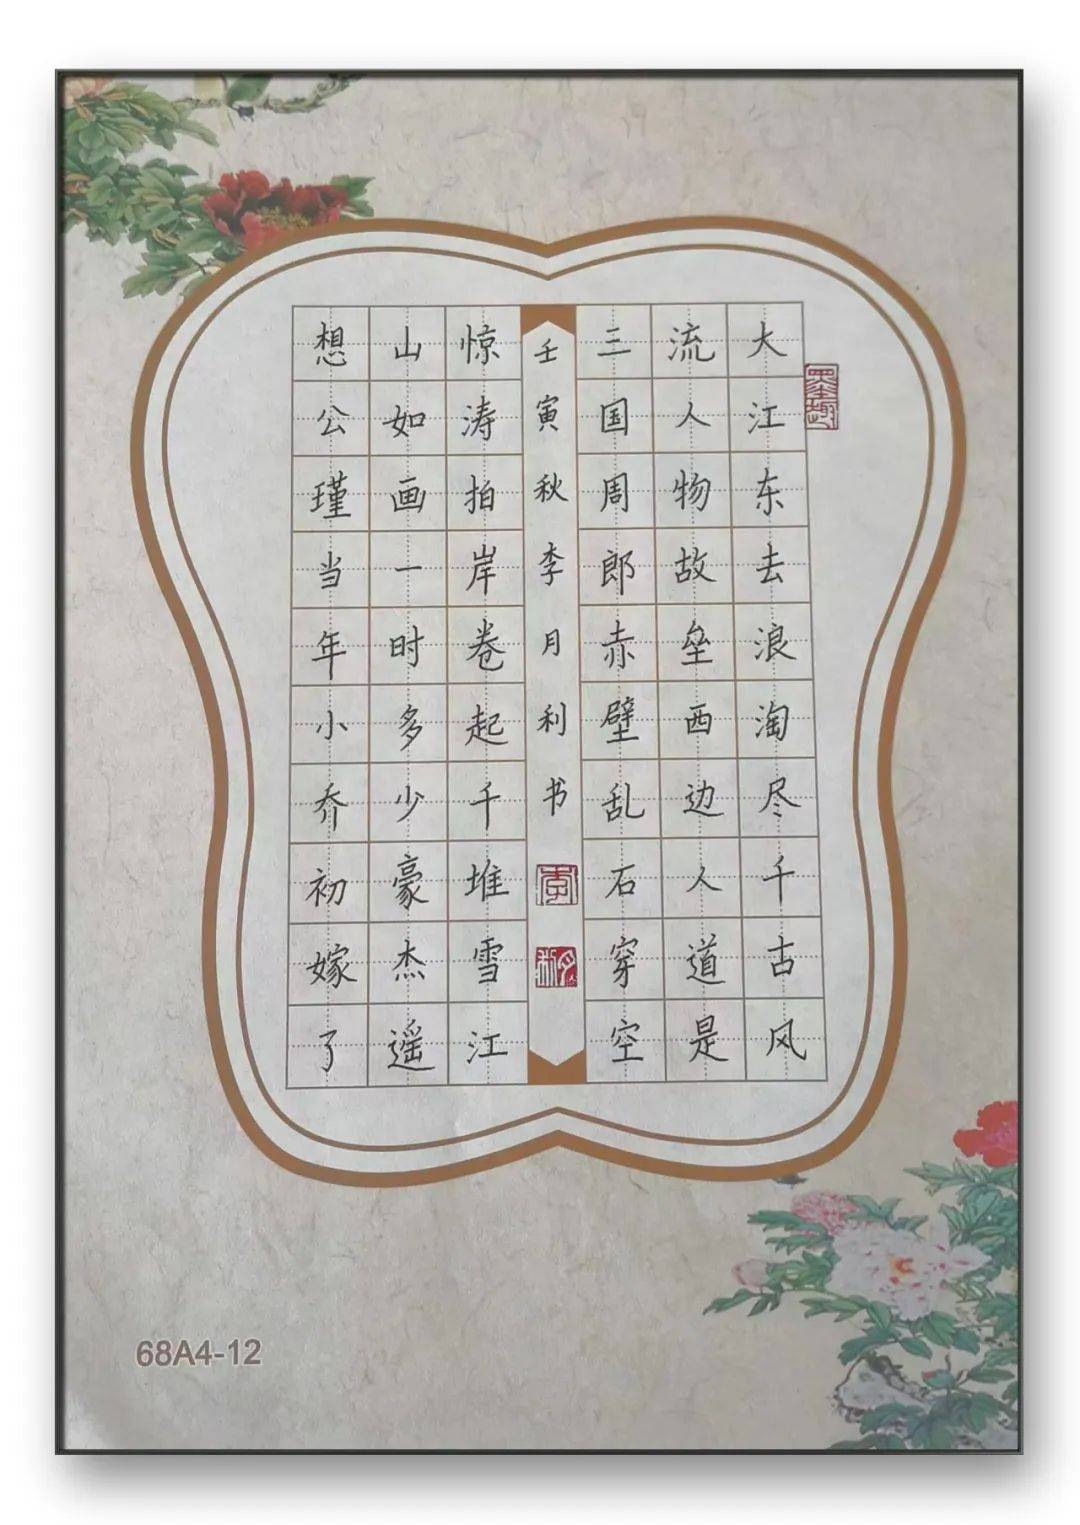 大江东去浪淘尽千古风
流人物故垒西边人道是
三国周郎赤壁乱石穿空
惊涛拍岸卷起千堆雪江
山如画一时多少豪杰遥
想公瑾当年小乔初嫁了
壬寅秋李月利书
墨趣
李
月利
68A4-12